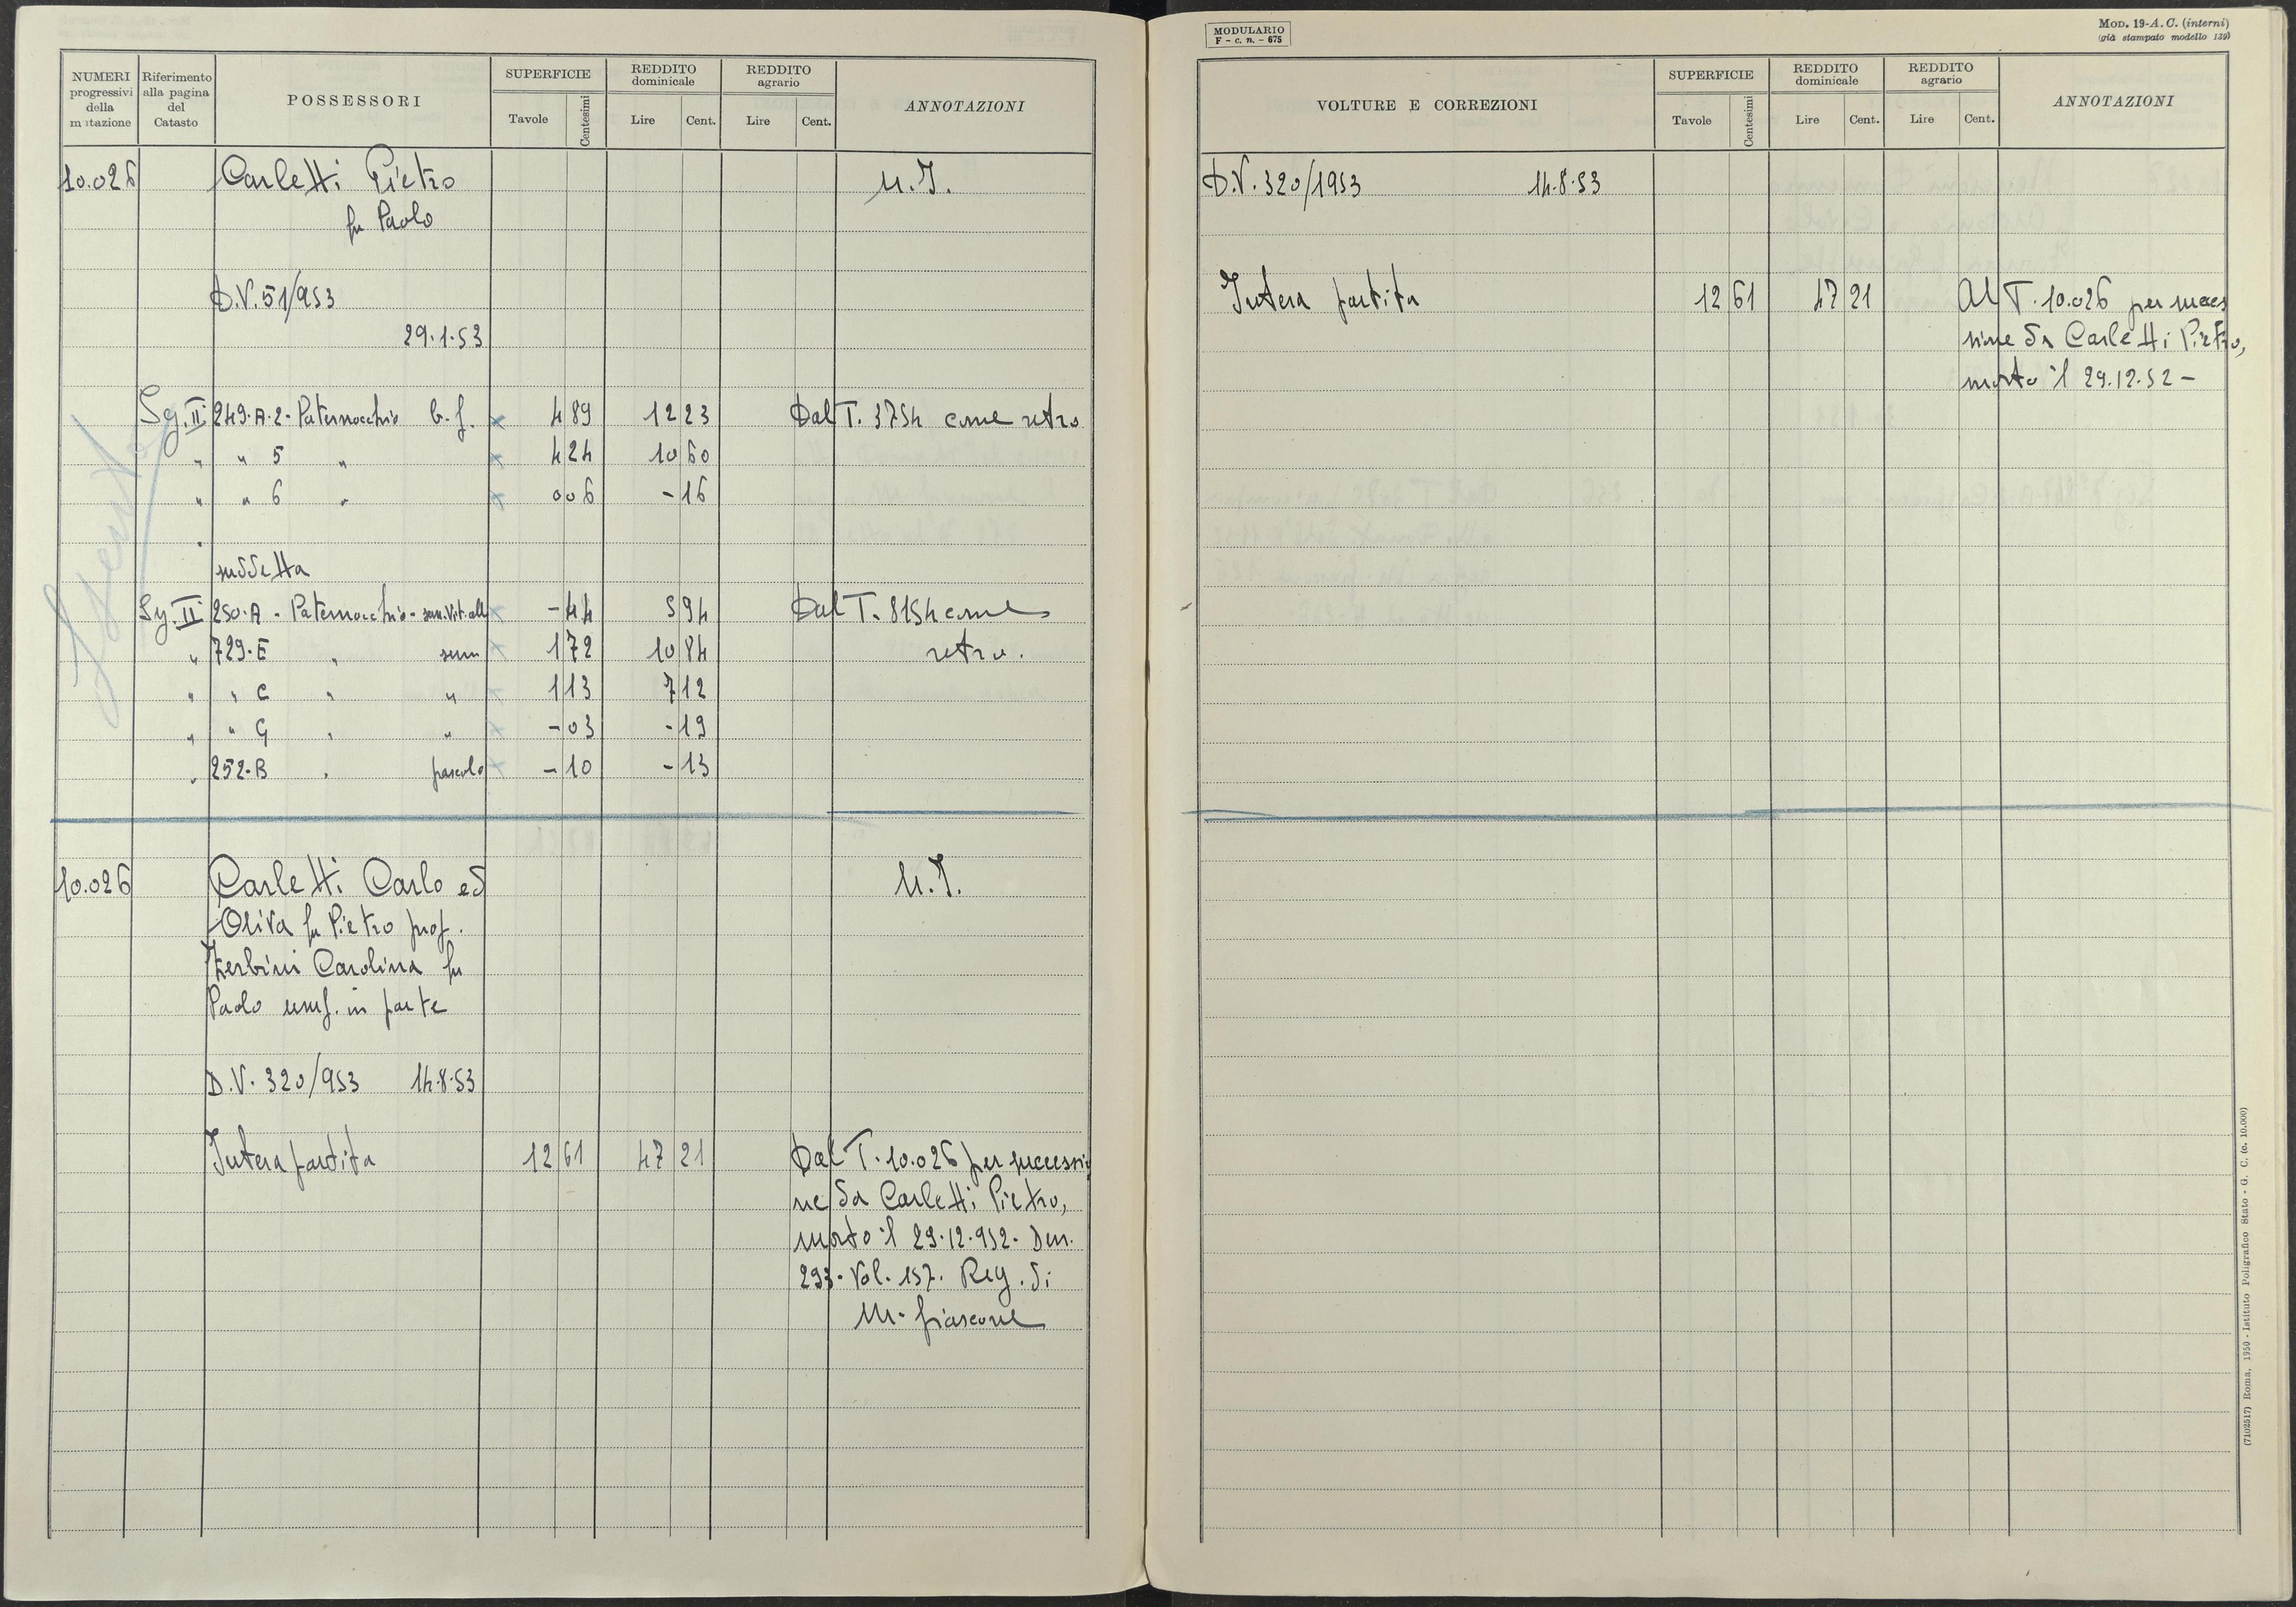 NUMERI progressivi della mutazione
Riferimento alla pagina del Catasto
POSSESSORI
SUPERFICIE
Tavole
Centesimi
REDDITO dominicale
Lire
Cent.
REDDITO agrario
Lire
Cent.
ANNOTAZIONI
10.026 Carletti Pietro U.I.
fu Paolo
D.V. 51/953
29.1.53
Sg. II 249-A-2- Paternocchio b.f. 4 89 12 23 Dal T. 3754 come retro
" " 5 " 4 24 10 60
" " 6 " 0 06 - 16
suddetta
Sg. II 250-A - Paternocchio - sem. vit. all 1 - 44 5 94 Dal T. 8154 come
" 729-E " sem 1 72 10 84 retro.
" " C " " 1 13 7 12
" " G " " - 03 - 19
" 252-B " pascolo - 10 - 13
10.026 Carletti Carlo ed U.I.
Oliva fu Pietro prop.
Zerbini Carolina fu
Paolo usuf. in parte
D.V. 320/953 14.8.53
Intera partita 12 61 47 21 Dal T. 10.026 per successio
ne da Carletti Pietro,
morto il 29.12.952. Den.
293. Vol. 157. Reg. di
M. fiascone
MODULARIO
F - c. n. - 675
MOD. 19-A. C. (interni)
(già stampato modello 139)
VOLTURE E CORREZIONI
SUPERFICIE
Tavole
Centesimi
REDDITO dominicale
Lire
Cent.
REDDITO agrario
Lire
Cent.
ANNOTAZIONI
D.V. 320/1953 14.8.53
Intera partita 12 61 47 21 Al T. 10.026 per succes
sione da Carletti Pietro,
morto il 29.12.52 -
(7102517) Roma, 1950 - Istituto Poligrafico Stato - G. C. (c. 10.000)